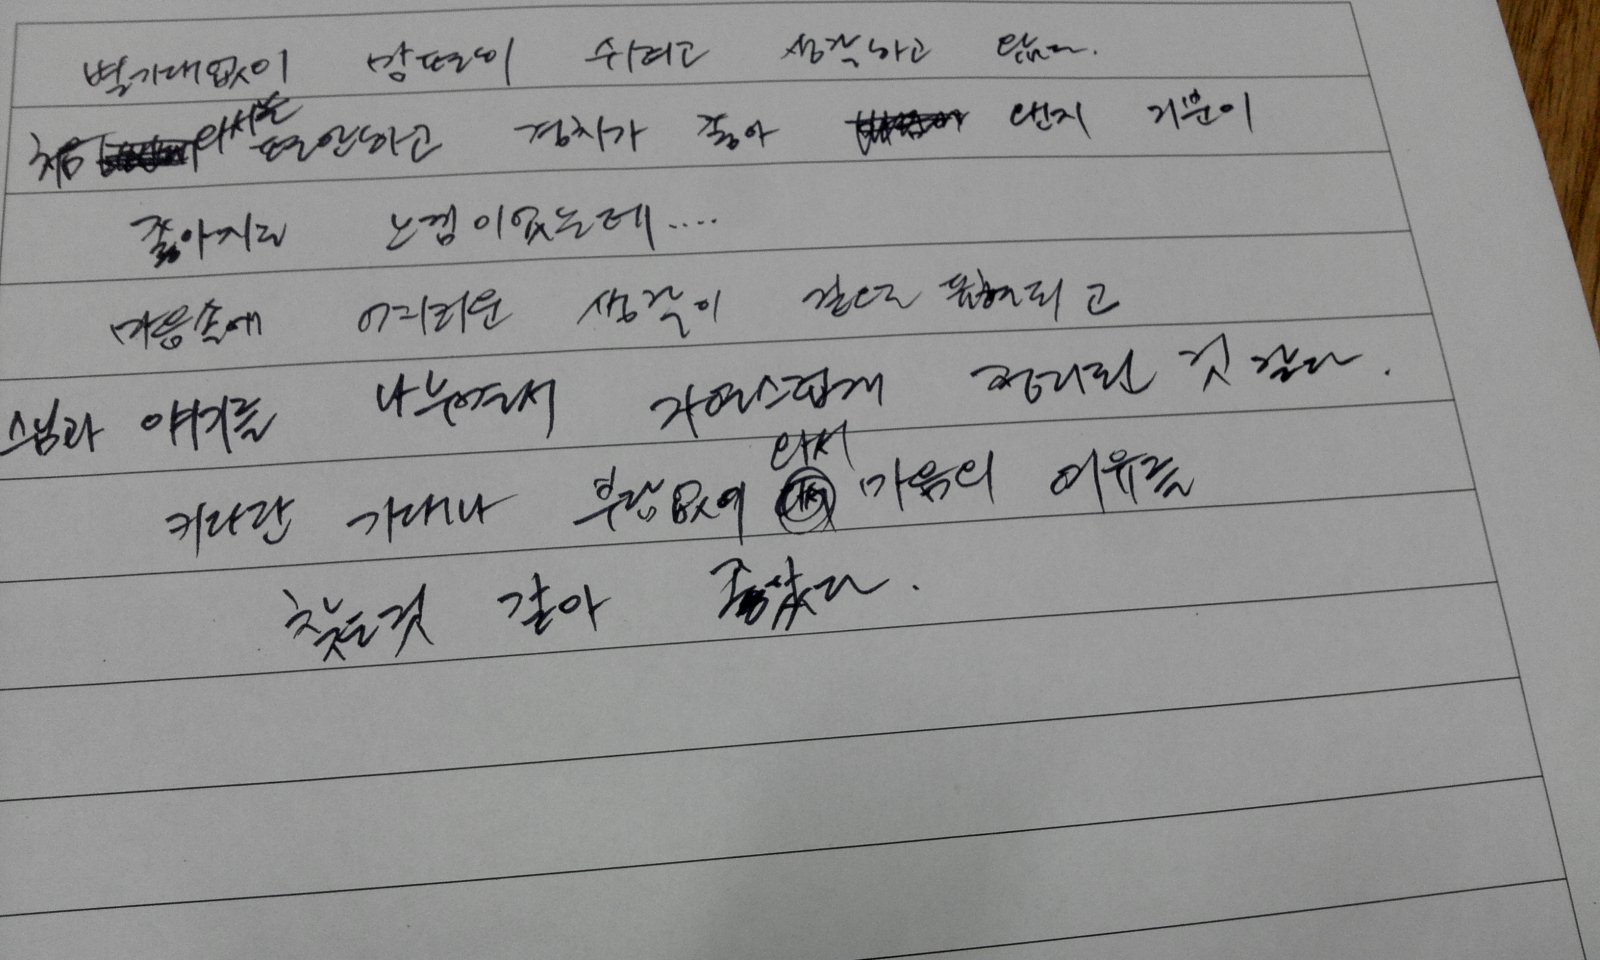 별기대없이 맘편히 쉬려고 생각하고 왔다.
처음 와서는 편안하고 경치가 좋아 왠지 기분이
좋아지는 느낌이었는데....
마음속에 어지러운 생각이 겉으로 표현되고
스님과 얘기를 나누면서 자연스럽게 정리된 것 같다.
커다란 기대나 부담없이 와서 마음의 여유를
찾는것 같아 좋았다.